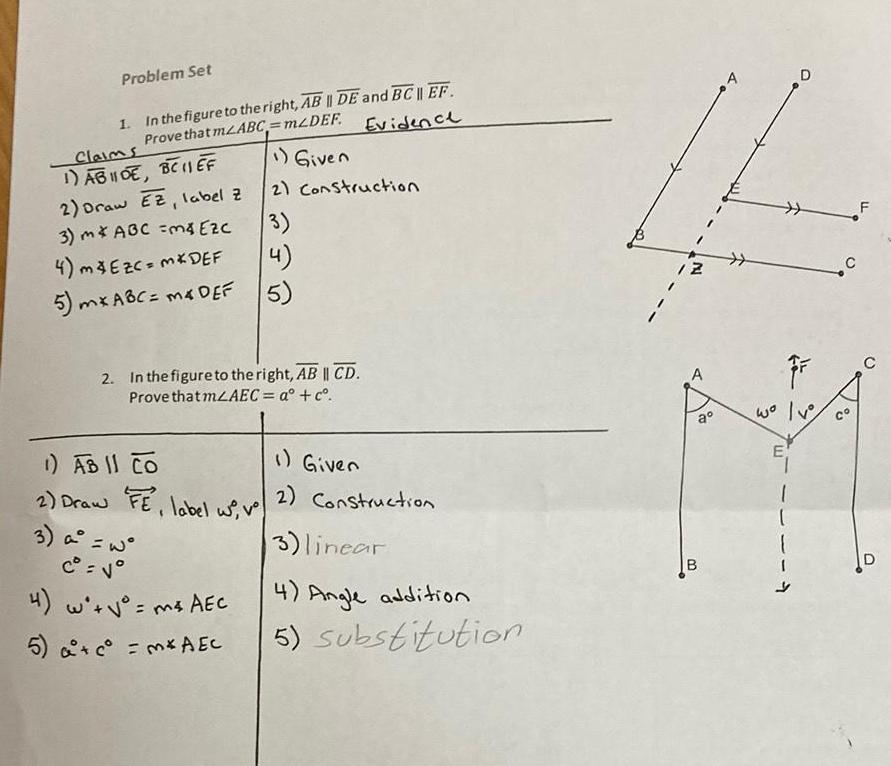 Problem Set
1. In the figure to the right, AB || DE and BC || EF.
Prove that m∠ABC = m∠DEF. Evidence
Claims
1) AB || DE, BC || EF
1) Given
2) Draw EZ, label Z
2) Construction
3) m∡ ABC = m∡ EZC
3)
4) m∡ EZC = m∡ DEF
4)
5) m∡ ABC = m∡ DEF
5)
A
D
E
F
B
Z
C
2. In the figure to the right, AB || CD.
Prove that m∠AEC = a° + c°.
1) AB || CD
1) Given
2) Draw FE, label w°, v°
2) Construction
3) a° = w°
c° = v°
3) linear
4) w° + v° = m∡ AEC
4) Angle addition
5) a° + c° = m∡ AEC
5) substitution
A
F
C
a°
w°
v°
c°
E
B
D